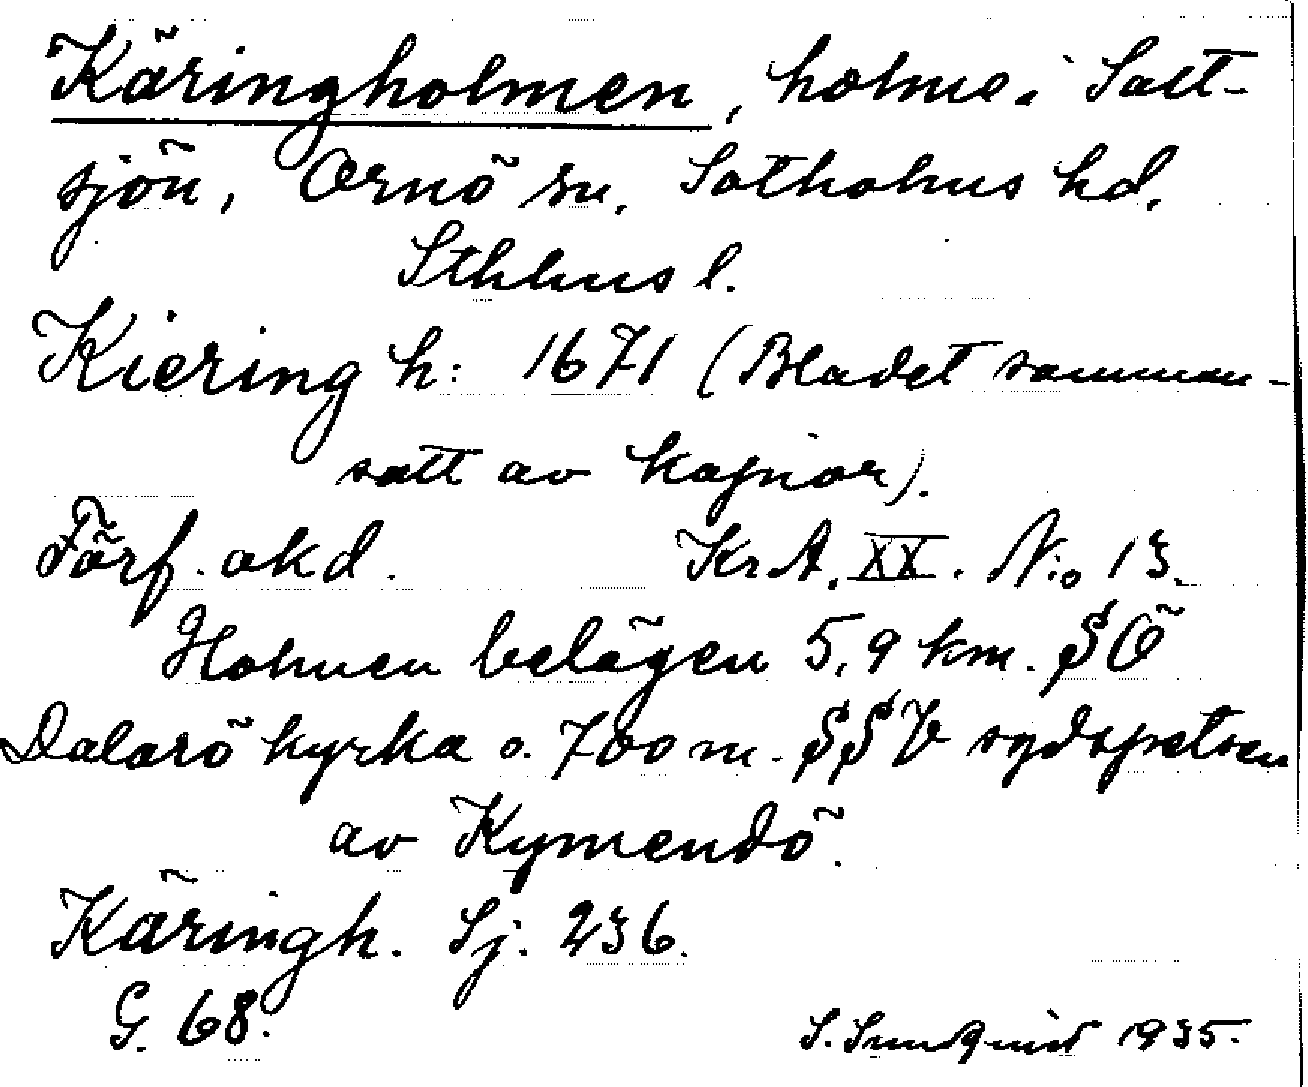 Käringholmen, holme i Salt-
sjön, Ornö sn. Sotholms hd.
Sthlms l.
Kiering h: 1671 (Bladet samman-
satt av kopior).
Förf. okd. KrA. XX. No 13.
Holmen belägen 5,9 km. SÖ
Dalarö kyrka o. 700 m. SSV sydspetsen
av Kymendö.
Käringh. Sj. 236.
G. 68.
S. Sundquist 1935.